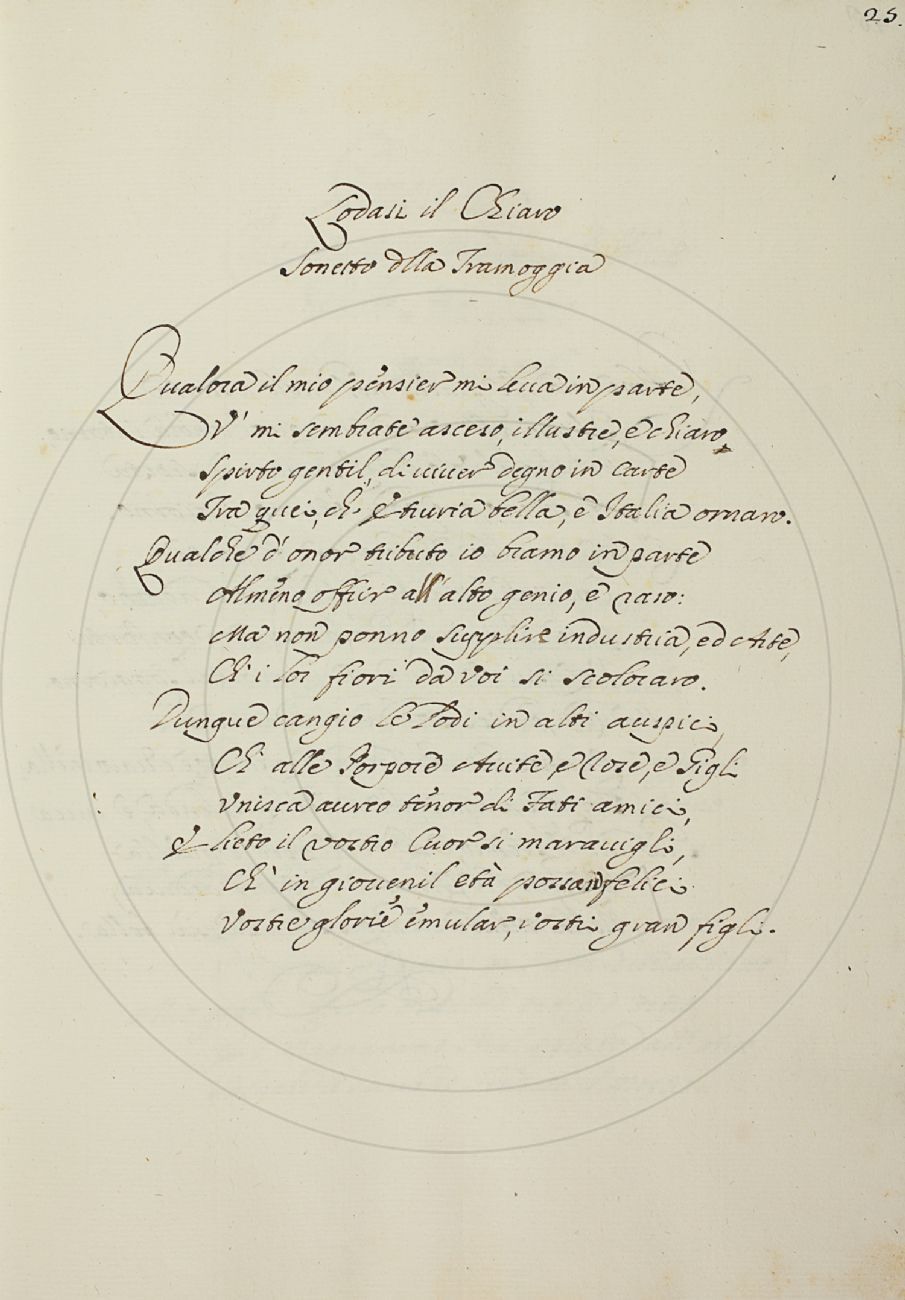 25.
Lodasi il Chiaro
Sonetto dlla Tramoggia
Qualora il mio pensier mi leva in parte,
V' mi sembrate asceso, illustre, e chiaro,
Spirto gentil, di viver degno in carte
Tra quei, ch' Etruria bella, e Italia ornaro.
Qualche d' onor tributo io bramo in parte
Almeno offrir all' alto genio, e raro:
Ma non ponno supplire industria, ed Arte,
Ch' i lor fiori da voi si scoloraro.
Dunque cangio le Lodi in altri auspici,
Ch' alle Porpore Avite, e Rose, e Gigli
Unisca aureo tenor di Fati amici,
E lieto il vostro Cuor si maravigli,
Ch' in giovenil età possan felici
Vostre glorie emular, i vostri gran figli.